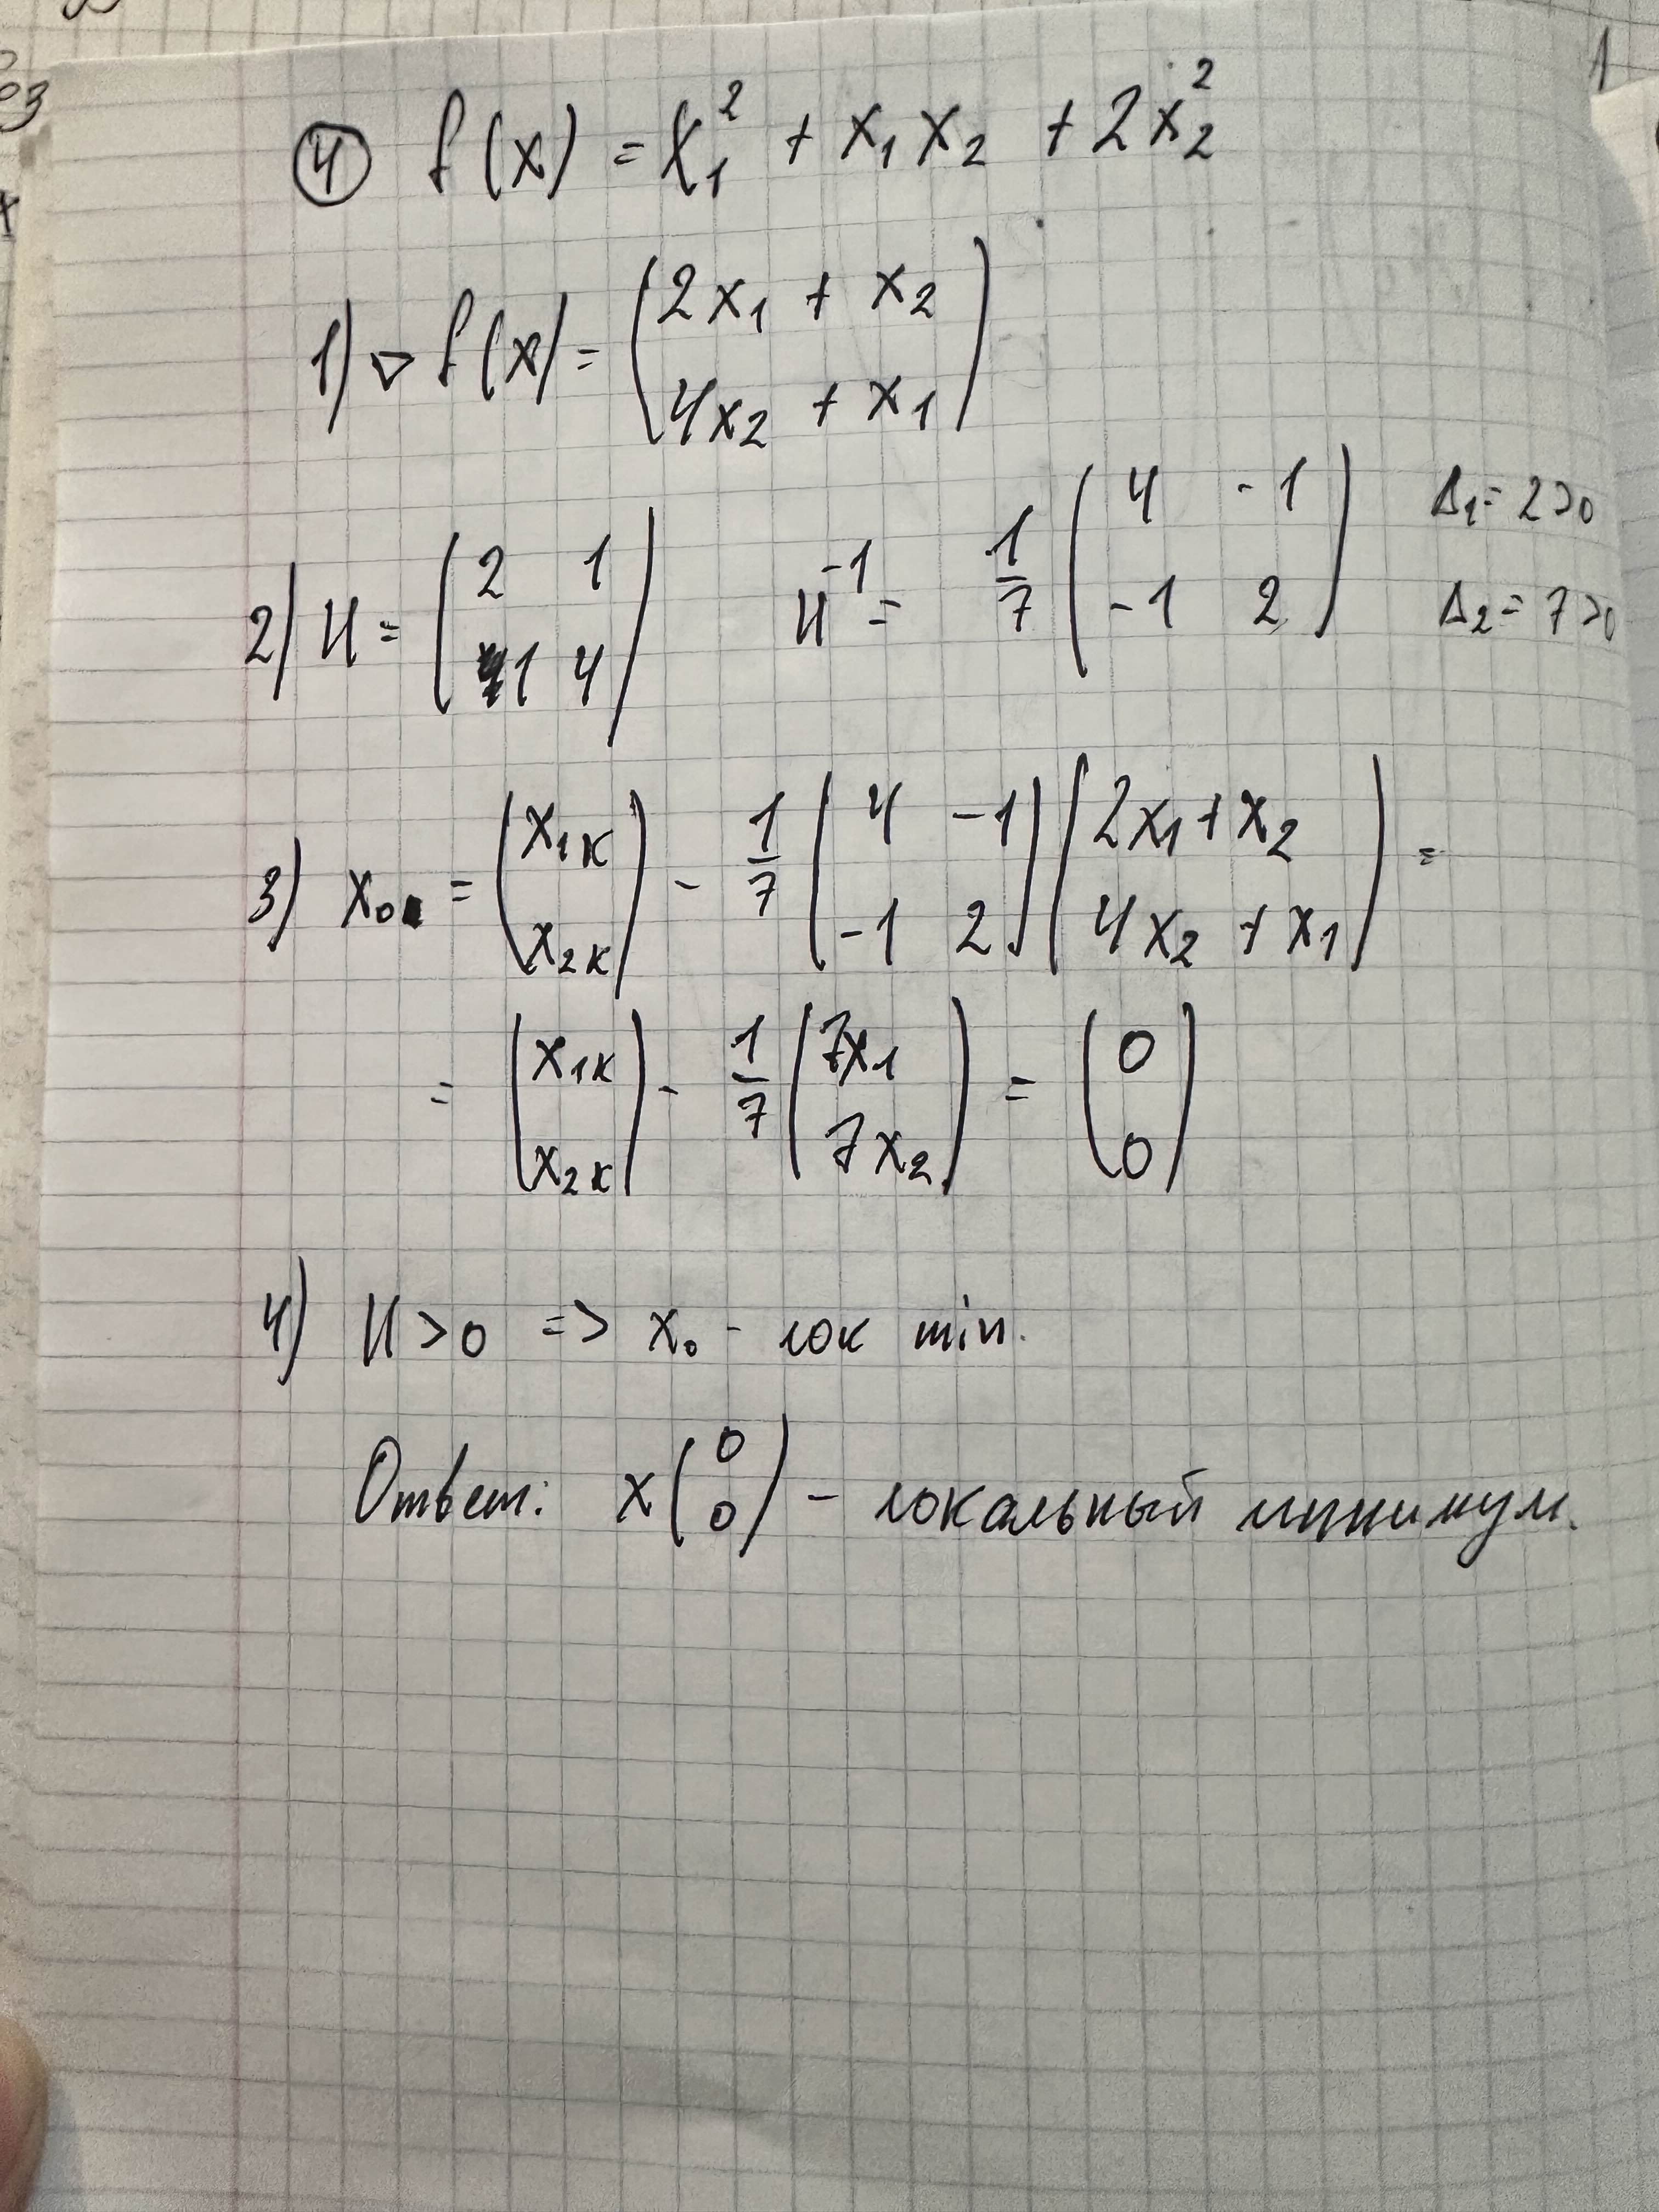 ④ f(x) = x₁² + x₁x₂ + 2x₂²
1) ▽ f(x) = (2x₁ + x₂
4x₂ + x₁)
2) H = (2 1
1 4) H⁻¹ = 1/7 (4 -1
-1 2) Δ₁ = 2>0
Δ₂ = 7>0
3) x₀ = (x₁ₖ
x₂ₖ) - 1/7 (4 -1
-1 2)(2x₁+x₂
4x₂ + x₁) =
= (x₁ₖ
x₂ₖ) - 1/7 (7x₁
7x₂) = (0
0)
4) H>0 => x₀ - лок min.
Ответ: x(0
0) - локальный минимум.